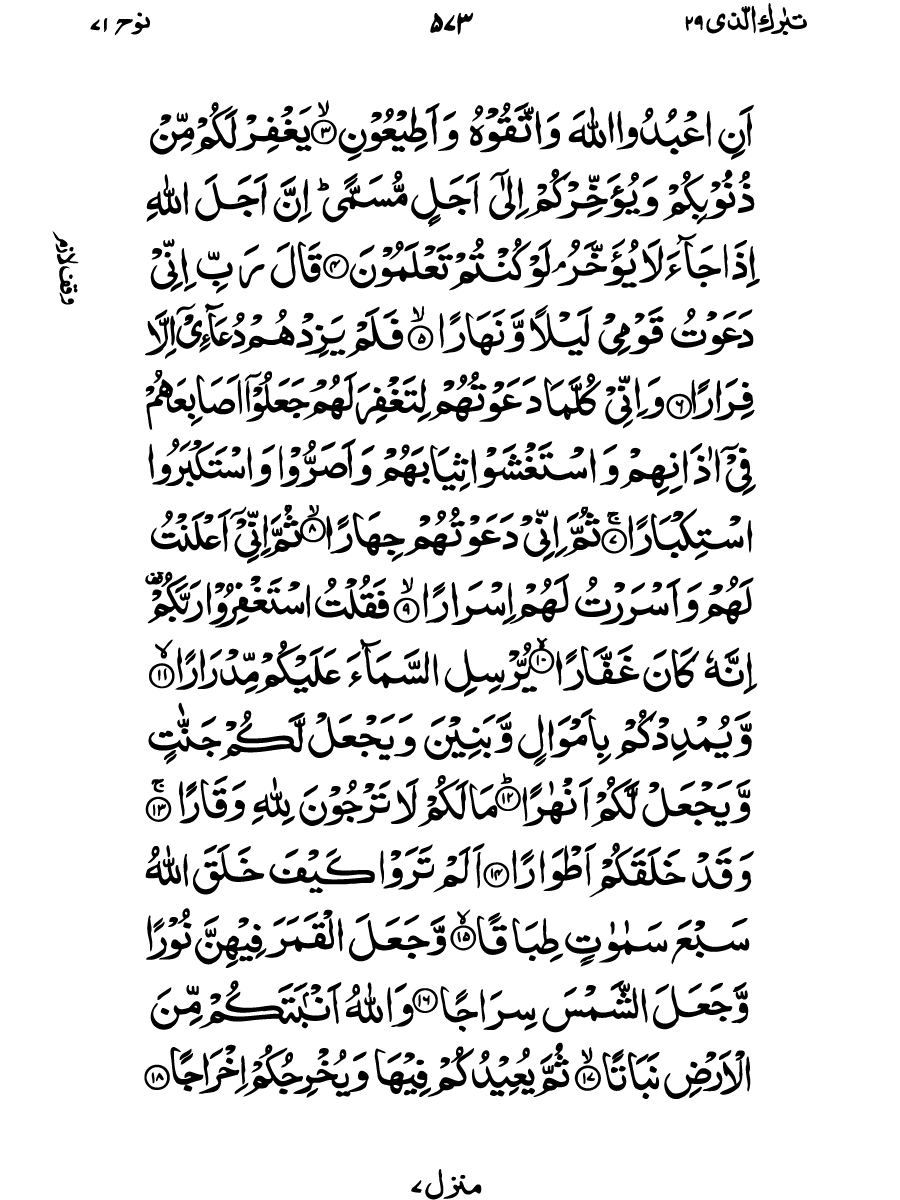 تبٰرك الّذی ۲۹
۵۷۳
نوح ۷۱
اَنِ اعْبُدُوا اللّٰهَ وَاتَّقُوْهُ وَ اَطِیْعُوْنِ ۙ۝۳ یَغْفِرْ لَكُمْ مِّنْ
ذُنُوْبِكُمْ وَیُؤَخِّرْكُمْ اِلٰۤی اَجَلٍ مُّسَمًّی ؕ اِنَّ اَجَلَ اللّٰهِ
اِذَا جَآءَ لَا یُؤَخَّرُ ۘ لَوْ كُنْتُمْ تَعْلَمُوْنَ ۝۴ قَالَ رَبِّ اِنِّیْ
وقف لازم
دَعَوْتُ قَوْمِیْ لَیْلًا وَّ نَهَارًا ۙ۝۵ فَلَمْ یَزِدْهُمْ دُعَآءِیْۤ اِلَّا
فِرَارًا ۝۶ وَ اِنِّیْ كُلَّمَا دَعَوْتُهُمْ لِتَغْفِرَ لَهُمْ جَعَلُوْۤا اَصَابِعَهُمْ
فِیْۤ اٰذَانِهِمْ وَ اسْتَغْشَوْا ثِیَابَهُمْ وَ اَصَرُّوْا وَ اسْتَكْبَرُوا
اسْتِكْبَارًا ۚ۝۷ ثُمَّ اِنِّیْ دَعَوْتُهُمْ جِهَارًا ۙ۝۸ ثُمَّ اِنِّیْۤ اَعْلَنْتُ
لَهُمْ وَ اَسْرَرْتُ لَهُمْ اِسْرَارًا ۙ۝۹ فَقُلْتُ اسْتَغْفِرُوْا رَبَّكُمْ ۫ؕ
اِنَّهٗ كَانَ غَفَّارًا ۙ۝۱۰ یُّرْسِلِ السَّمَآءَ عَلَیْكُمْ مِّدْرَارًا ۙ۝۱۱
وَّ یُمْدِدْكُمْ بِاَمْوَالٍ وَّ بَنِیْنَ وَ یَجْعَلْ لَّكُمْ جَنّٰتٍ
وَّ یَجْعَلْ لَّكُمْ اَنْهٰرًا ؕ۝۱۲ مَا لَكُمْ لَا تَرْجُوْنَ لِلّٰهِ وَقَارًا ۚ۝۱۳
وَ قَدْ خَلَقَكُمْ اَطْوَارًا ۝۱۴ اَلَمْ تَرَوْا كَیْفَ خَلَقَ اللّٰهُ
سَبْعَ سَمٰوٰتٍ طِبَاقًا ۙ۝۱۵ وَّ جَعَلَ الْقَمَرَ فِیْهِنَّ نُوْرًا
وَّ جَعَلَ الشَّمْسَ سِرَاجًا ۝۱۶ وَ اللّٰهُ اَنْۢبَتَكُمْ مِّنَ
الْاَرْضِ نَبَاتًا ۙ۝۱۷ ثُمَّ یُعِیْدُكُمْ فِیْهَا وَ یُخْرِجُكُمْ اِخْرَاجًا ۝۱۸
منزل ۷